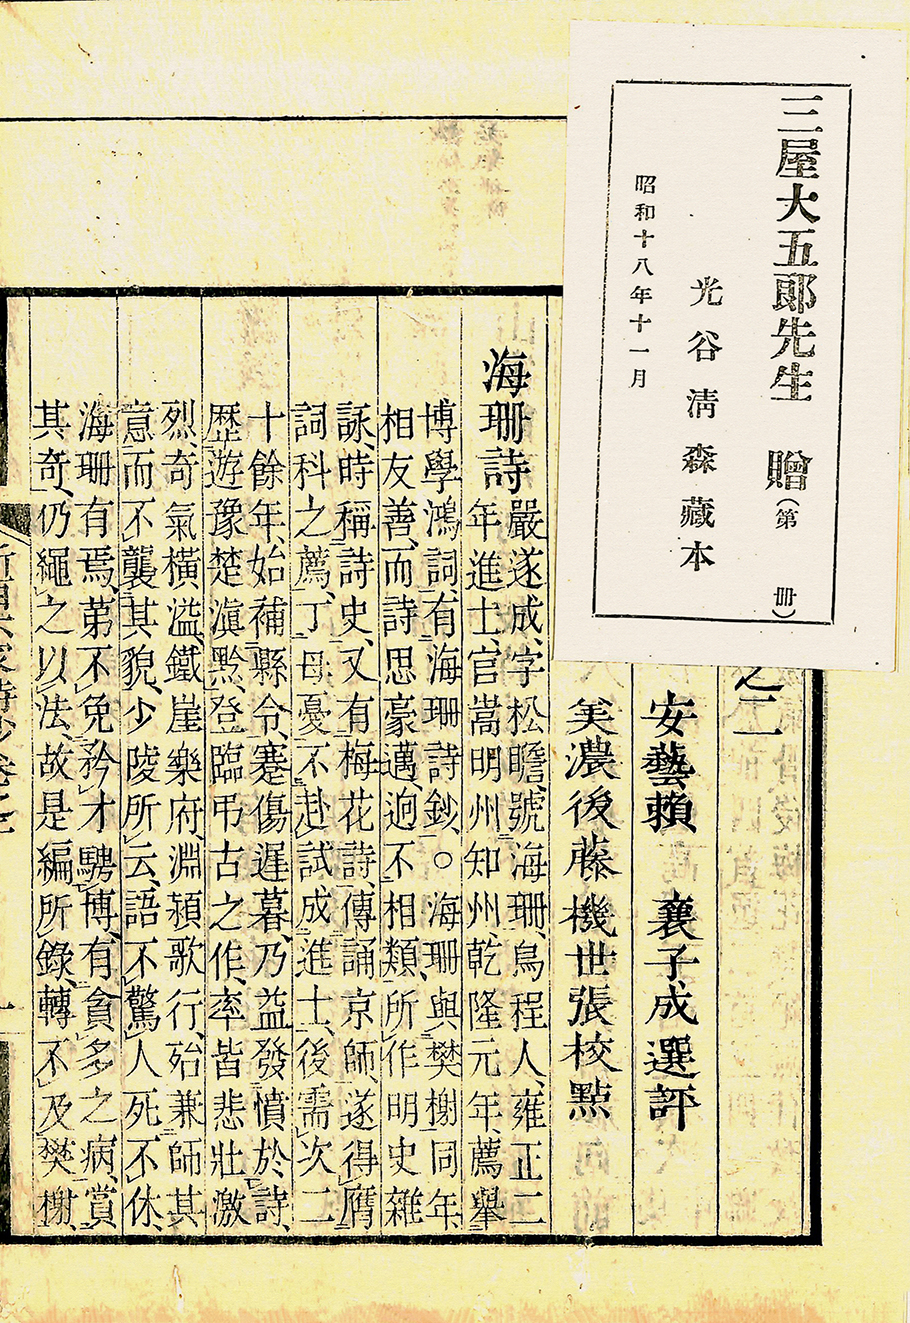 三屋大五郎先生 贈(第 冊)
光谷清森藏本
昭和十八年十一月
之二
安藝賴 襄子成選評
美濃後藤機世張校點
海珊詩 嚴遂成、字松瞻、號海珊、烏程人、雍正二
年進士、官嵩明州知州、乾隆元年、薦舉
博學鴻詞、有海珊詩鈔、○海珊與樊榭同年、
相友善、而詩思豪邁、逈不相類、所作明史雜
詠、時稱詩史、又有梅花詩、傳誦京師、遂得膺
詞科之薦、丁母憂不赴、試成進士、後需次二
十餘年、始補縣令、蹇傷遲暮、乃益發憤於詩、
歷遊豫楚滇黔、登臨弔古之作、率皆悲壯激
烈、奇氣橫溢、鐵崖樂府、淵潁歌行、殆兼師其
意而不襲其貌、少陵所云、語不驚人死不休、
海珊有焉、苐不免矜才騁博、有貪多之病、賞
其奇、仍繩之以法、故是編所錄、轉不及樊榭、